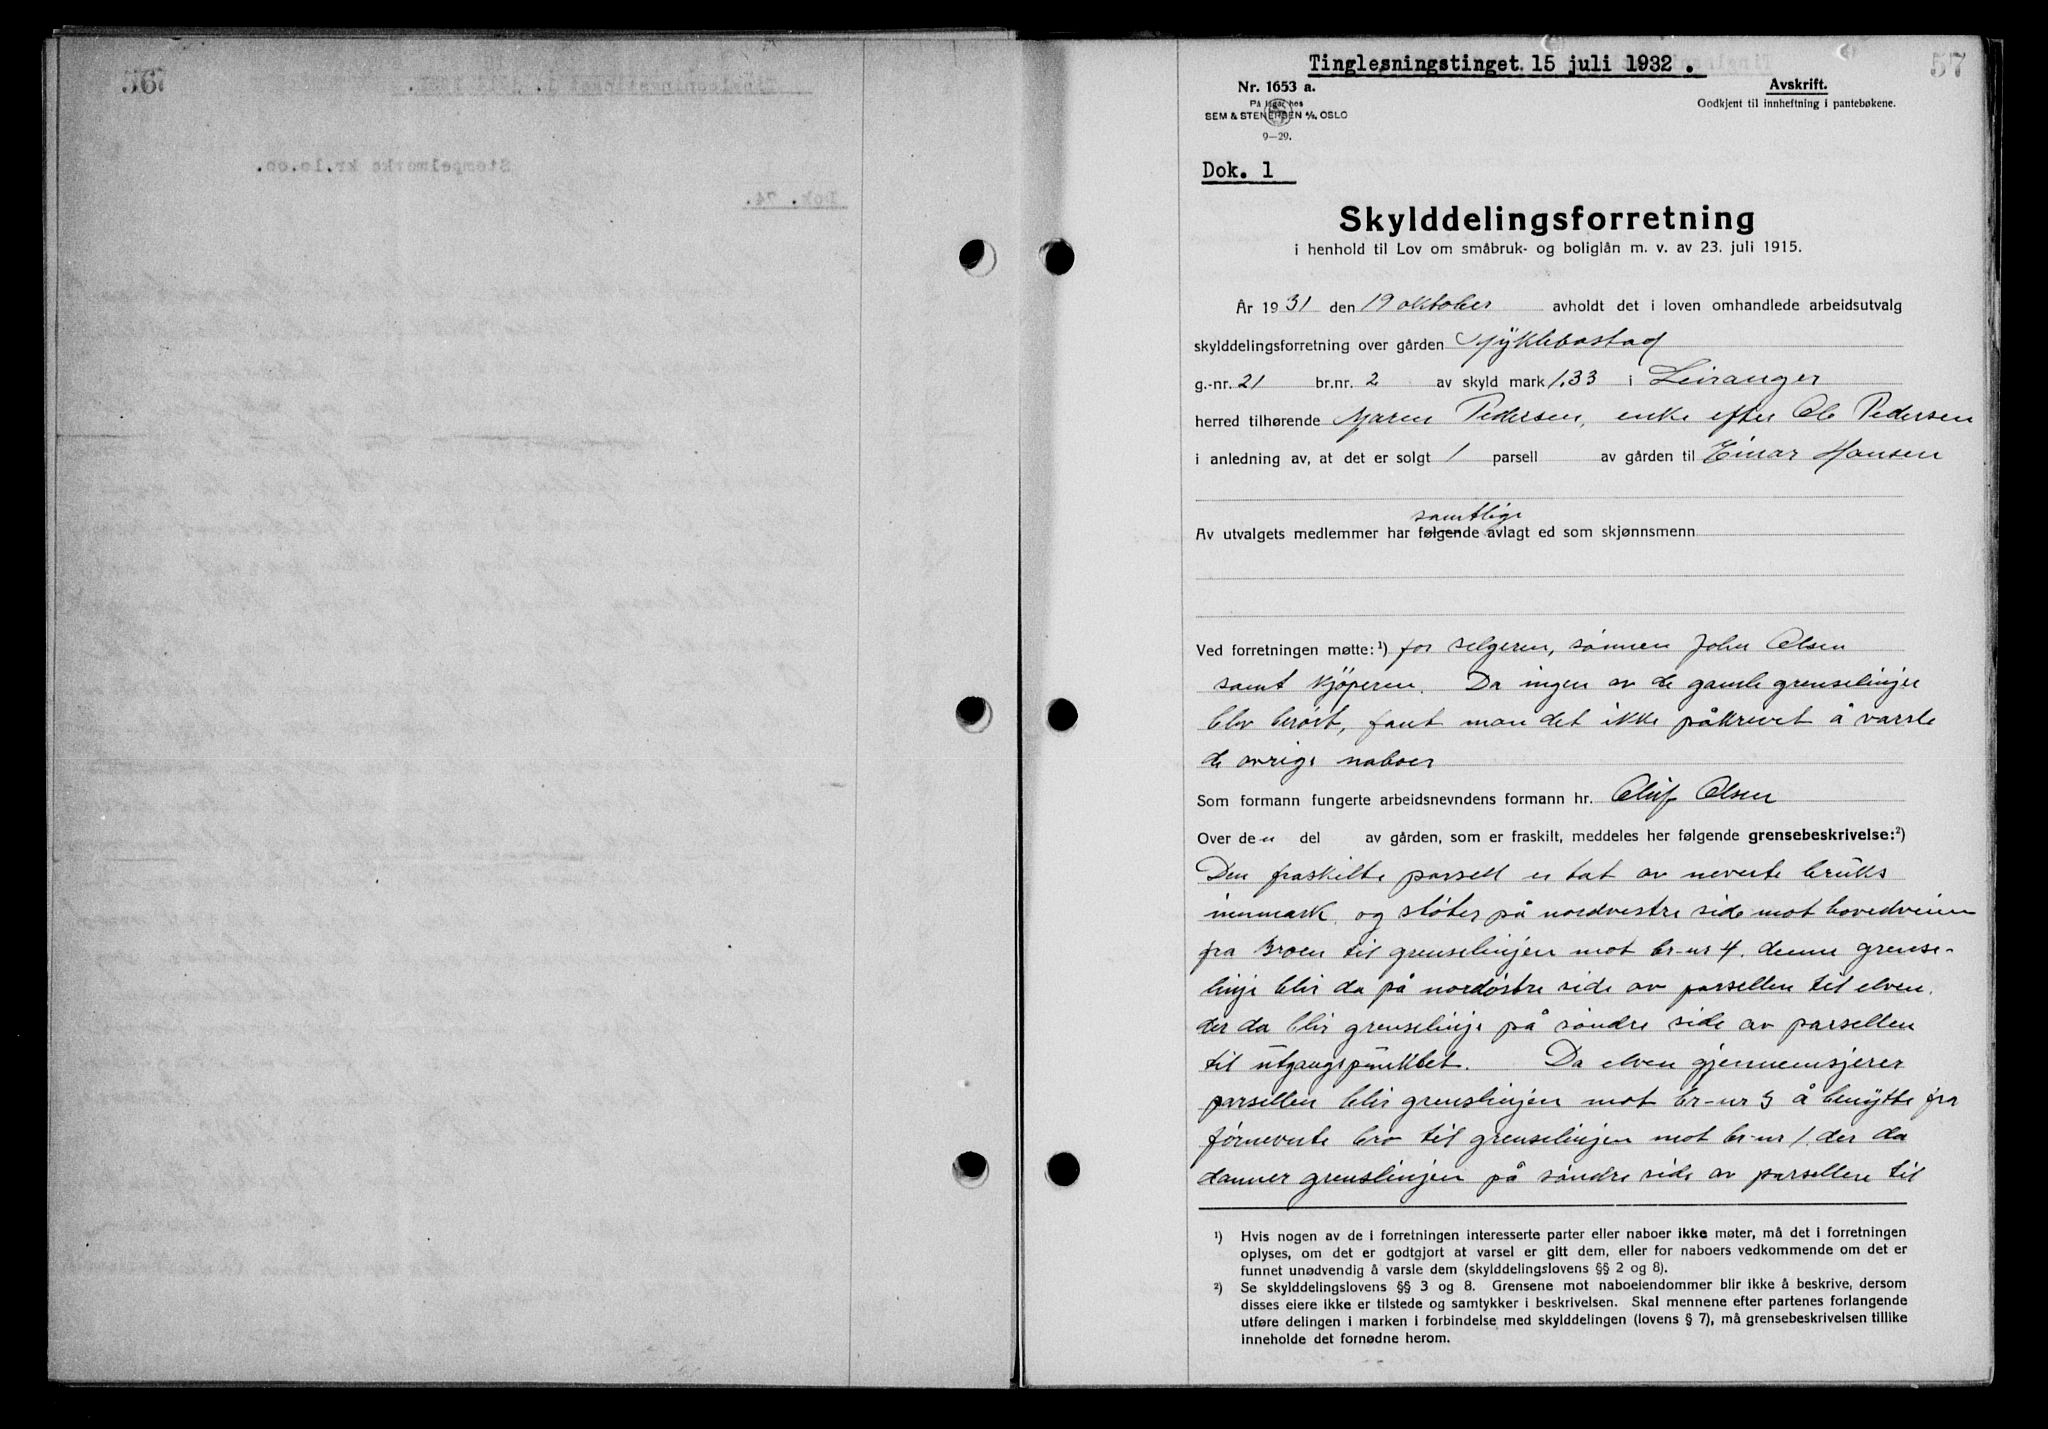 57
Tinglesningstinget 15 juli 1932.
Nr. 1653 a.
På lager hos
SEM & STENERSEN A/S, OSLO
9—29.
Avskrift.
Godkjent til innheftning i pantebøkene.
Dok. 1
Skylddelingsforretning
i henhold til Lov om småbruk- og boliglån m. v. av 23. juli 1915.
År 1931 den 19 oktober avholdt det i loven omhandlede arbeidsutvalg
skylddelingsforretning over gården Myklebostad
g.-nr. 21 br.nr. 2 av skyld mark 1,33 i Leiranger
herred tilhørende Maren Pedersen, enke efter Ole Pedersen
i anledning av, at det er solgt 1 parsell av gården til Einar Hansen
samtlige
Av utvalgets medlemmer har følgende avlagt ed som skjønnsmenn
Ved forretningen møtte:¹) for selgeren, sønnen John Olsen
samt kjøperen. Da ingen av de gamle grenselinjer
blev berørt, fant man det ikke påkrevet å varsle
de øvrige naboer
Som formann fungerte arbeidsnevndens formann hr. Oluf Olsen
Over den del av gården, som er fraskilt, meddeles her følgende grensebeskrivelse:²)
Den fraskilte parsell er tat av nevnte bruks
innmark, og støter på nordvestre side mot hovedveien
fra Broen til grenselinjen mot br-nr 4. denne grense-
linje blir da på nordøstre side av parsellen til elven.
der da blir grenselinje på søndre side av parsellen
til utgangspunktet. Da elven gjennemsjerer
parsellen blir grenslinjen mot br-nr 3 å benytte fra
førnevnte bro til grenselinjen mot br-nr 1. der da
danner grenslinjen på søndre side av parsellen til
¹) Hvis nogen av de i forretningen interesserte parter eller naboer ikke møter, må det i forretningen
oplyses, om det er godtgjort at varsel er gitt dem, eller for naboers vedkommende om det er
funnet unødvendig å varsle dem (skylddelingslovens §§ 2 og 8).
²) Se skylddelingslovens §§ 3 og 8. Grensene mot naboeiendommer blir ikke å beskrive, dersom
disses eiere ikke er tilstede og samtykker i beskrivelsen. Skal mennene efter partenes forlangende
utføre delingen i marken i forbindelse med skylddelingen (lovens § 7), må grensebeskrivelsen tillike
inneholde det fornødne herom.